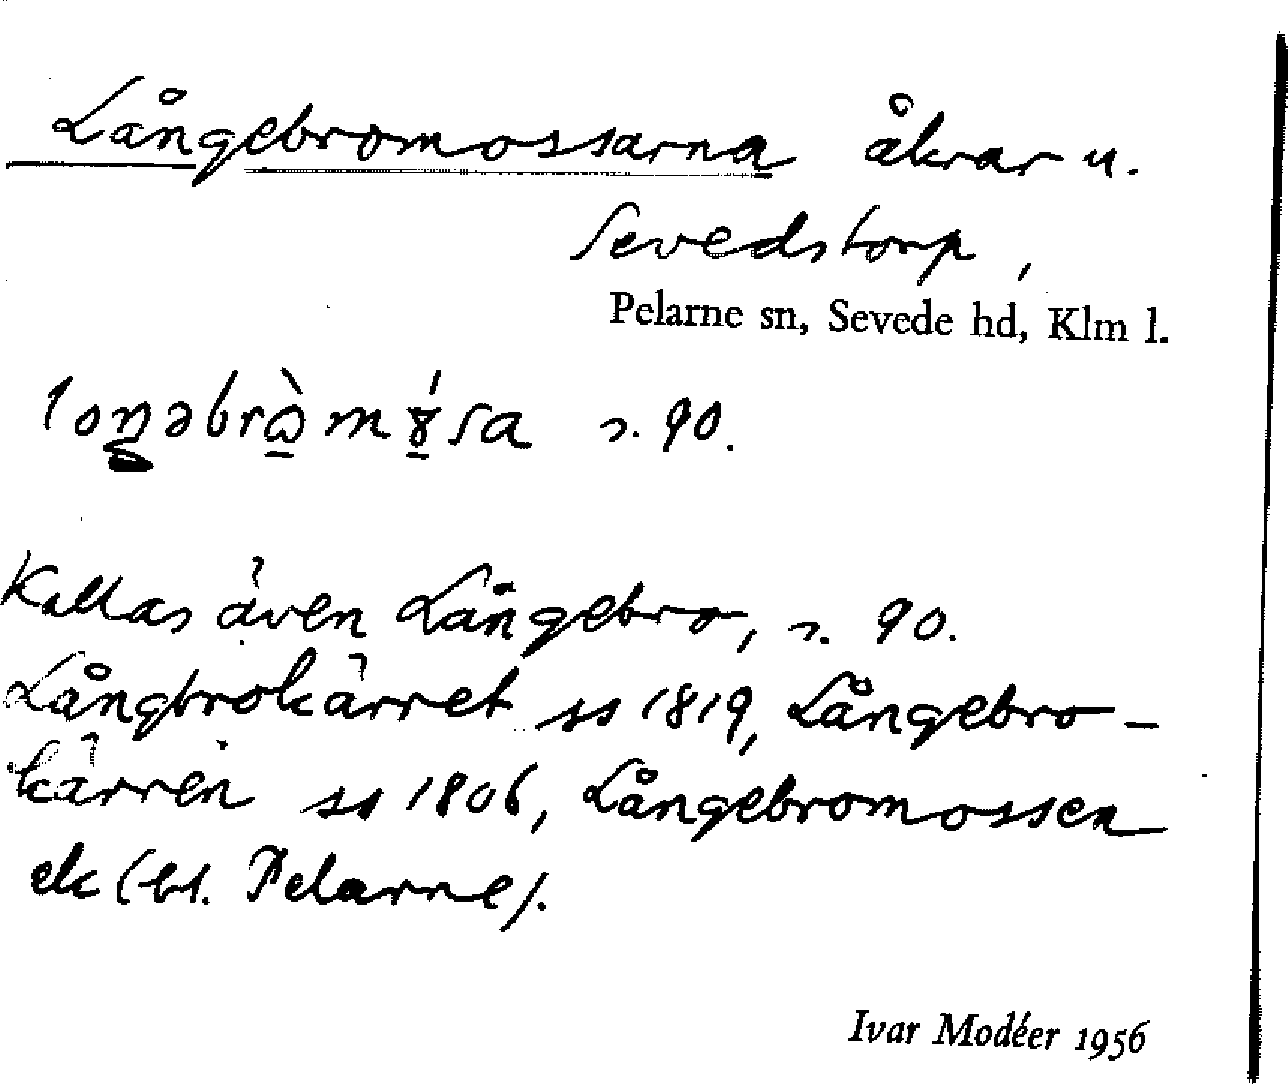 Långebromossarna åkrar u.
Sevedstorp,
Pelarne sn, Sevede hd, Klm l.
s. 90.
Kallas även Långebro, s. 90.
Långbrokärret ss 1819, Långebro-
kärren ss 1806, Långebromossen
ek (bl. Pelarne).
Ivar Modéer 1956